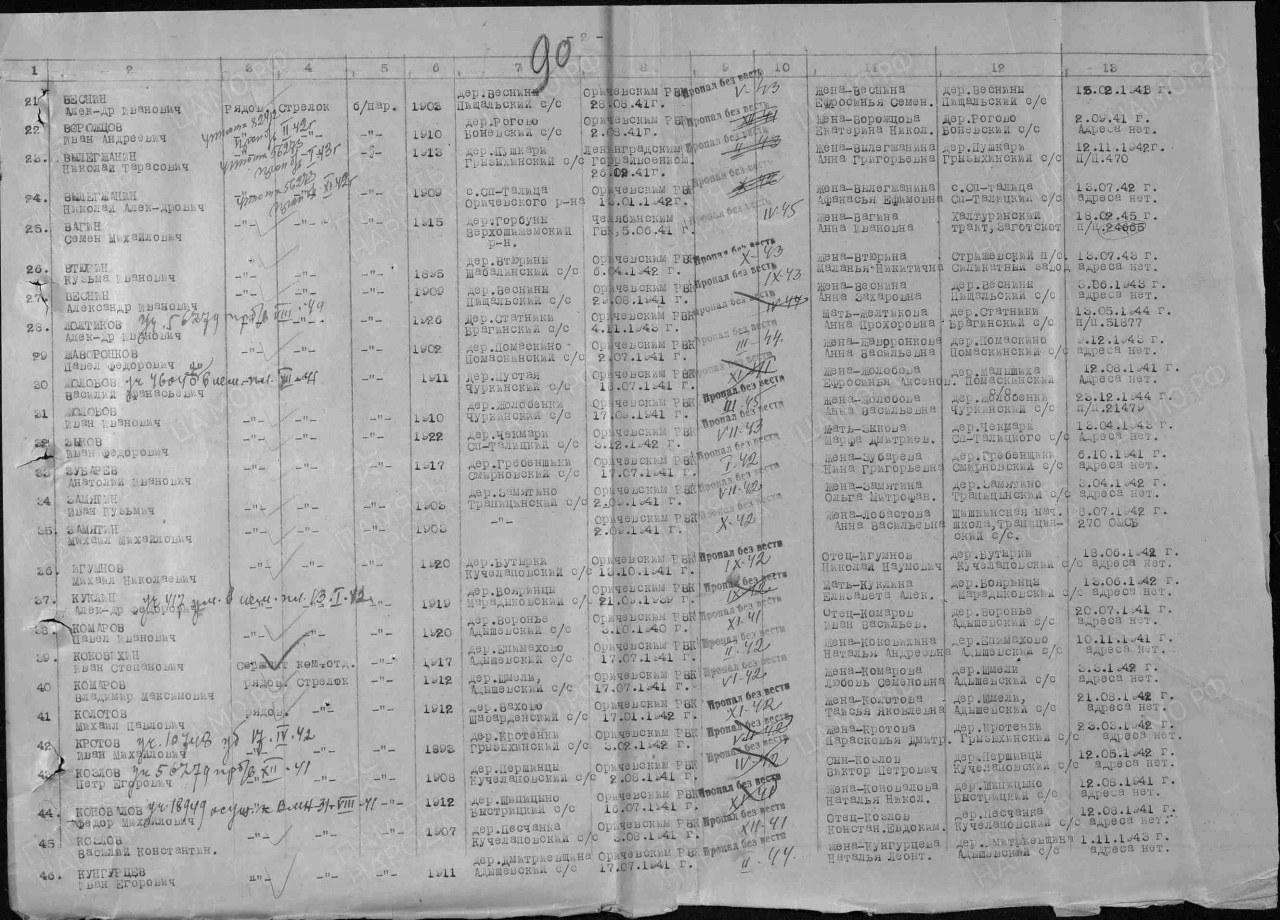 - 2 -
90
1 2 3 4 5 6 7 8 9 10 11 12 13
21. ВЕСНИН Алек-др Иванович Рядов. Стрелок б/пар. 1903 дер.Веснины Пищальский с/с Оричевским РВК 28.08.41г. Пропал без вести V-43 Жена-Веснина Ефросинья Семен. дер.Веснины Пищальский с/с 15.02.1943 г.
22. ВОРОЖЦОВ Иван Андреевич -"- -"- 1910 дер.Рогово Боневский с/с Оричевским РВК 2.08.41г. Пропал без вести Жена-Ворожцова Екатерина Никол. дер.Рогово Боневский с/с 2.09.41 г. Адреса нет.
23. ВЫЛЕГЖАНИН Николай Тарасович -"- 1913 дер.Пушкари Грызыхинский с/с Ленинградским Горрайвоенком. Пропал без вести Жена-Вылегжанина Анна Григорьевна дер.Пушкари Грызыхинский с/с 12.11.1942г. П/П.470
24. ВЫЛЕГЖАНИН Николай Алек-дрович -"- 1909 с.Сп-Талица Оричевского р-на Оричевским РВК 13.01.1942г. Пропал без вести Жена-Вылегжанина Афанасья Ефимовна с.Сп-Талица Сп-Талицкий с/с 13.07.42 г. адреса нет.
25. ВАГИН Семен Михайлович -"- -"- -"- 1915 дер.Горбуны Верхошижемский р-н. Челябинским ГВК,5.06.41 г. Пропал без вести IV-45 Жена-Вагина Анна Ивановна Халтуринский тракт,Заготскот 18.02.45 г. П/П.24665
26. ВТЮРИН Кузьма Иванович -"- -"- -"- 1895 дер.Втюрины Шабалинский с/с Оричевским РВК 6.04.1942 г. Пропал без вести X-43 Жена-Втюрина Маланья Никитична Стрижевский п/с. Силикатный завод 13.07.43 г. адреса нет.
27. ВЕСНИН Александр Иванович -"- -"- -"- 1909 дер.Веснины Пищальский с/с Оричевским РВК 29.08.1941 г. Пропал без вести IX-43 Жена-Веснина Анна Захаровна дер.Веснины Пищальский с/с 3.06.1943 г. адреса нет.
28. ЖОЛТИКОВ Алек-др Иванович уч. 56279 -"- -"- 1926 дер.Статники Брагинский с/с Оричевским РВК 4.11.1943 г. Пропал без вести IV-44 Мать-Желтикова Анна Прохоровна дер.Статники Брагинский с/с 13.05.1944 г. П/П.51877
29 ЖАВОРОНКОВ Павел Федорович -"- -"- -"- 1902 дер.Помаскино Помаскинский с/с Оричевским РВК 2.07.1941 г. Пропал без вести III-44. Жена-Жаворонкова Анна Васильевна дер.Помаскино Помаскинский с/с 9.12.1943 г. Адреса нет.
30 ЖОЛОБОВ Василий Афанасьевич -"- 1911 дер.Пустая Чуркинский с/с Оричевским РВК 18.07.1941 г. Пропал без вести Жена-Жолобова Ефросинья Аксенов. дер.Малышика Помаскинский с/с 12.08.1941 г. Адреса нет.
31 ЖОЛОБОВ Иван Иванович -"- -"- -"- 1910 дер.Жолобенки Чуркинский с/с Оричевским РВК 17.09.1941 г. Пропал без вести III-45 Жена-Жолобова Анна Васильевна дер.Жолобенки Чуркинский с/с 23.12.1944 г. П/П.21479
32 ЗЫКОВ Иван Федорович -"- -"- -"- 1922 дер.Чекмари Сп-Талицкий с/с Оричевским РВК 3.12.1942 г. Пропал без вести VII-43 Мать-Зыкова Марфа Дмитриев. дер.Чекмари Сп-Талицкого с/с 13.04.1943 г. Адреса нет.
33 ЗУБАРЕВ Анатолий Иванович -"- -"- -"- 1917 дер.Гребенщики Смирновский с/с Оричевским РВК 17.07.1941 г. Пропал без вести I-42 Жена-Зубарева Нина Григорьевна дер.Гребенщики Смирновский с/с 6.10.1941 г. адреса нет.
34 ЗАМЯТИН Иван Кузьмич -"- -"- -"- 1903 дер.Замятино Трапицынский с/с Оричевским РВК 2.09.1941 г. Пропал без вести VII-42 Жена-Замятина Ольга Митрофан. дер.Замятино Трапицынский с/с 3.04.1942 г. адреса нет.
35. ЗАМЯТИН Михаил Михайлович -"- -"- -"- 1903 -"- Оричевским РВК 2.09.1941 г. Пропал без вести X-42 Жена-Лобастова Анна Васильевна Шишкинская нач. школа,Трапицинский с/с. 8.07.1942 г. 270 ОМСБ
36. ИГУМНОВ Михаил Николаевич -"- -"- -"- 1920 дер.Бутырки Кучелаповский с/с Оричевским РВК 13.10.1941 г. Пропал без вести IX-42 Отец-Игумнов Николай Наумович дер.Бутырки Кучелаповский с/с 18.06.1942 г. Адреса нет.
37. КУКЛИН Алек-др Федоров. -"- 1919 дер.Бояринцы Марадыковский с/с Оричевским РВК 21.09.1939 г. Пропал без вести Мать-Куклина Елизавета Алек. дер.Бояринцы Марадыковский с/с 13.06.1942 г. адреса нет.
38. КОМАРОВ Павел Иванович -"- -"- -"- 1920 дер.Воронье Адышевский с/с Оричевским РВК 3.10.1940 г. Пропал без вести XI-41 Отец-Комаров Иван Васильев. дер.Воронье Адышевский с/с 20.07.1941 г. адреса нет.
39. КОКОВИХИН Иван Степанович Сержант ком.отд. -"- 1917 дер.Епимахово Адышевский с/с Оричевским РВК 17.07.1941 г. Пропал без вести II-42 Жена-Коковихина Наталья Андреевна дер.Епимахово Адышевский с/с 10.11.1941 г. адреса нет.
40 КОМАРОВ Владимир Максимович рядов. Стрелок -"- 1912 дер.Шмели, Адышевский с/с Оричевским РВК 17.07.1941 г. Пропал без вести VI-42 Жена-Комарова Любовь Семеновна дер.Шмели Адышевский с/с 3.3.1942 г. Адреса нет.
41 КОЛОТОВ Михаил Павлович рядов. -"- -"- 1912 дер.Вахово Шабарденский с/с Оричевским РВК 17.01.1942 г. Пропал без вести XI-42 Жена-Колотова Таисья Яковлевна дер.Шмели, Адышевский с/с 21.08.1942 г. адреса нет.
42 КРОТОВ Иван Михайлович уч.10748 уб 17.IV.42 -"- 1893 дер.Кротенки Грызыхинский с/с Оричевским РВК 3.02.1942 г. Пропал без вести Жена-Кротова Парасковья Дмитр. дер.Кротенки Грызыхинский с/с 23.03.1942 г. адреса нет.
43 КОЗЛОВ Петр Егорович уч 56279 -"- 1908 дер.Першинцы Кучелаповский с/с Оричевским РВК 2.08.1941 г. Пропал без вести Сын-Козлов Виктор Петрович дер.Першинцы Кучелаповский с/с 12.05.1942 г. адреса нет.
44. КОНОВАЛОВ Федор Михайлович уч 18949 осужд. к ВМН-31-VIII-41 -"- 1912 дер.Шипицыно Быстрицкий с/с Оричевским РВК 16.07.1941 г. Пропал без вести Жена-Коновалова Наталья Никол. дер.Шипицыно Быстрицкий с/с 12.08.1941 г. адреса нет.
45 КОЗЛОВ Василий Константин. -"- -"- -"- 1907 дер.Песчанка Кучелаповский с/с Оричевским РВК 3.08.1941 г. Пропал без вести XII-41 Отец-Козлов Констан.Евдоким. дер.Песчанка Кучелаповский с/с 12.08.1941 г. адреса нет.
46. КУНГУРЦЕВ Иван Егорович -"- -"- -"- 1911 дер.Дмитриевщина Адышевский с/с Оричевским РВК 17.07.1941 г. Пропал без вести II-44. Жена-Кунгурцева Наталья Леонт. дер.Дмитриевщина Адышевский с/с 1.11.1943 г. адреса нет.